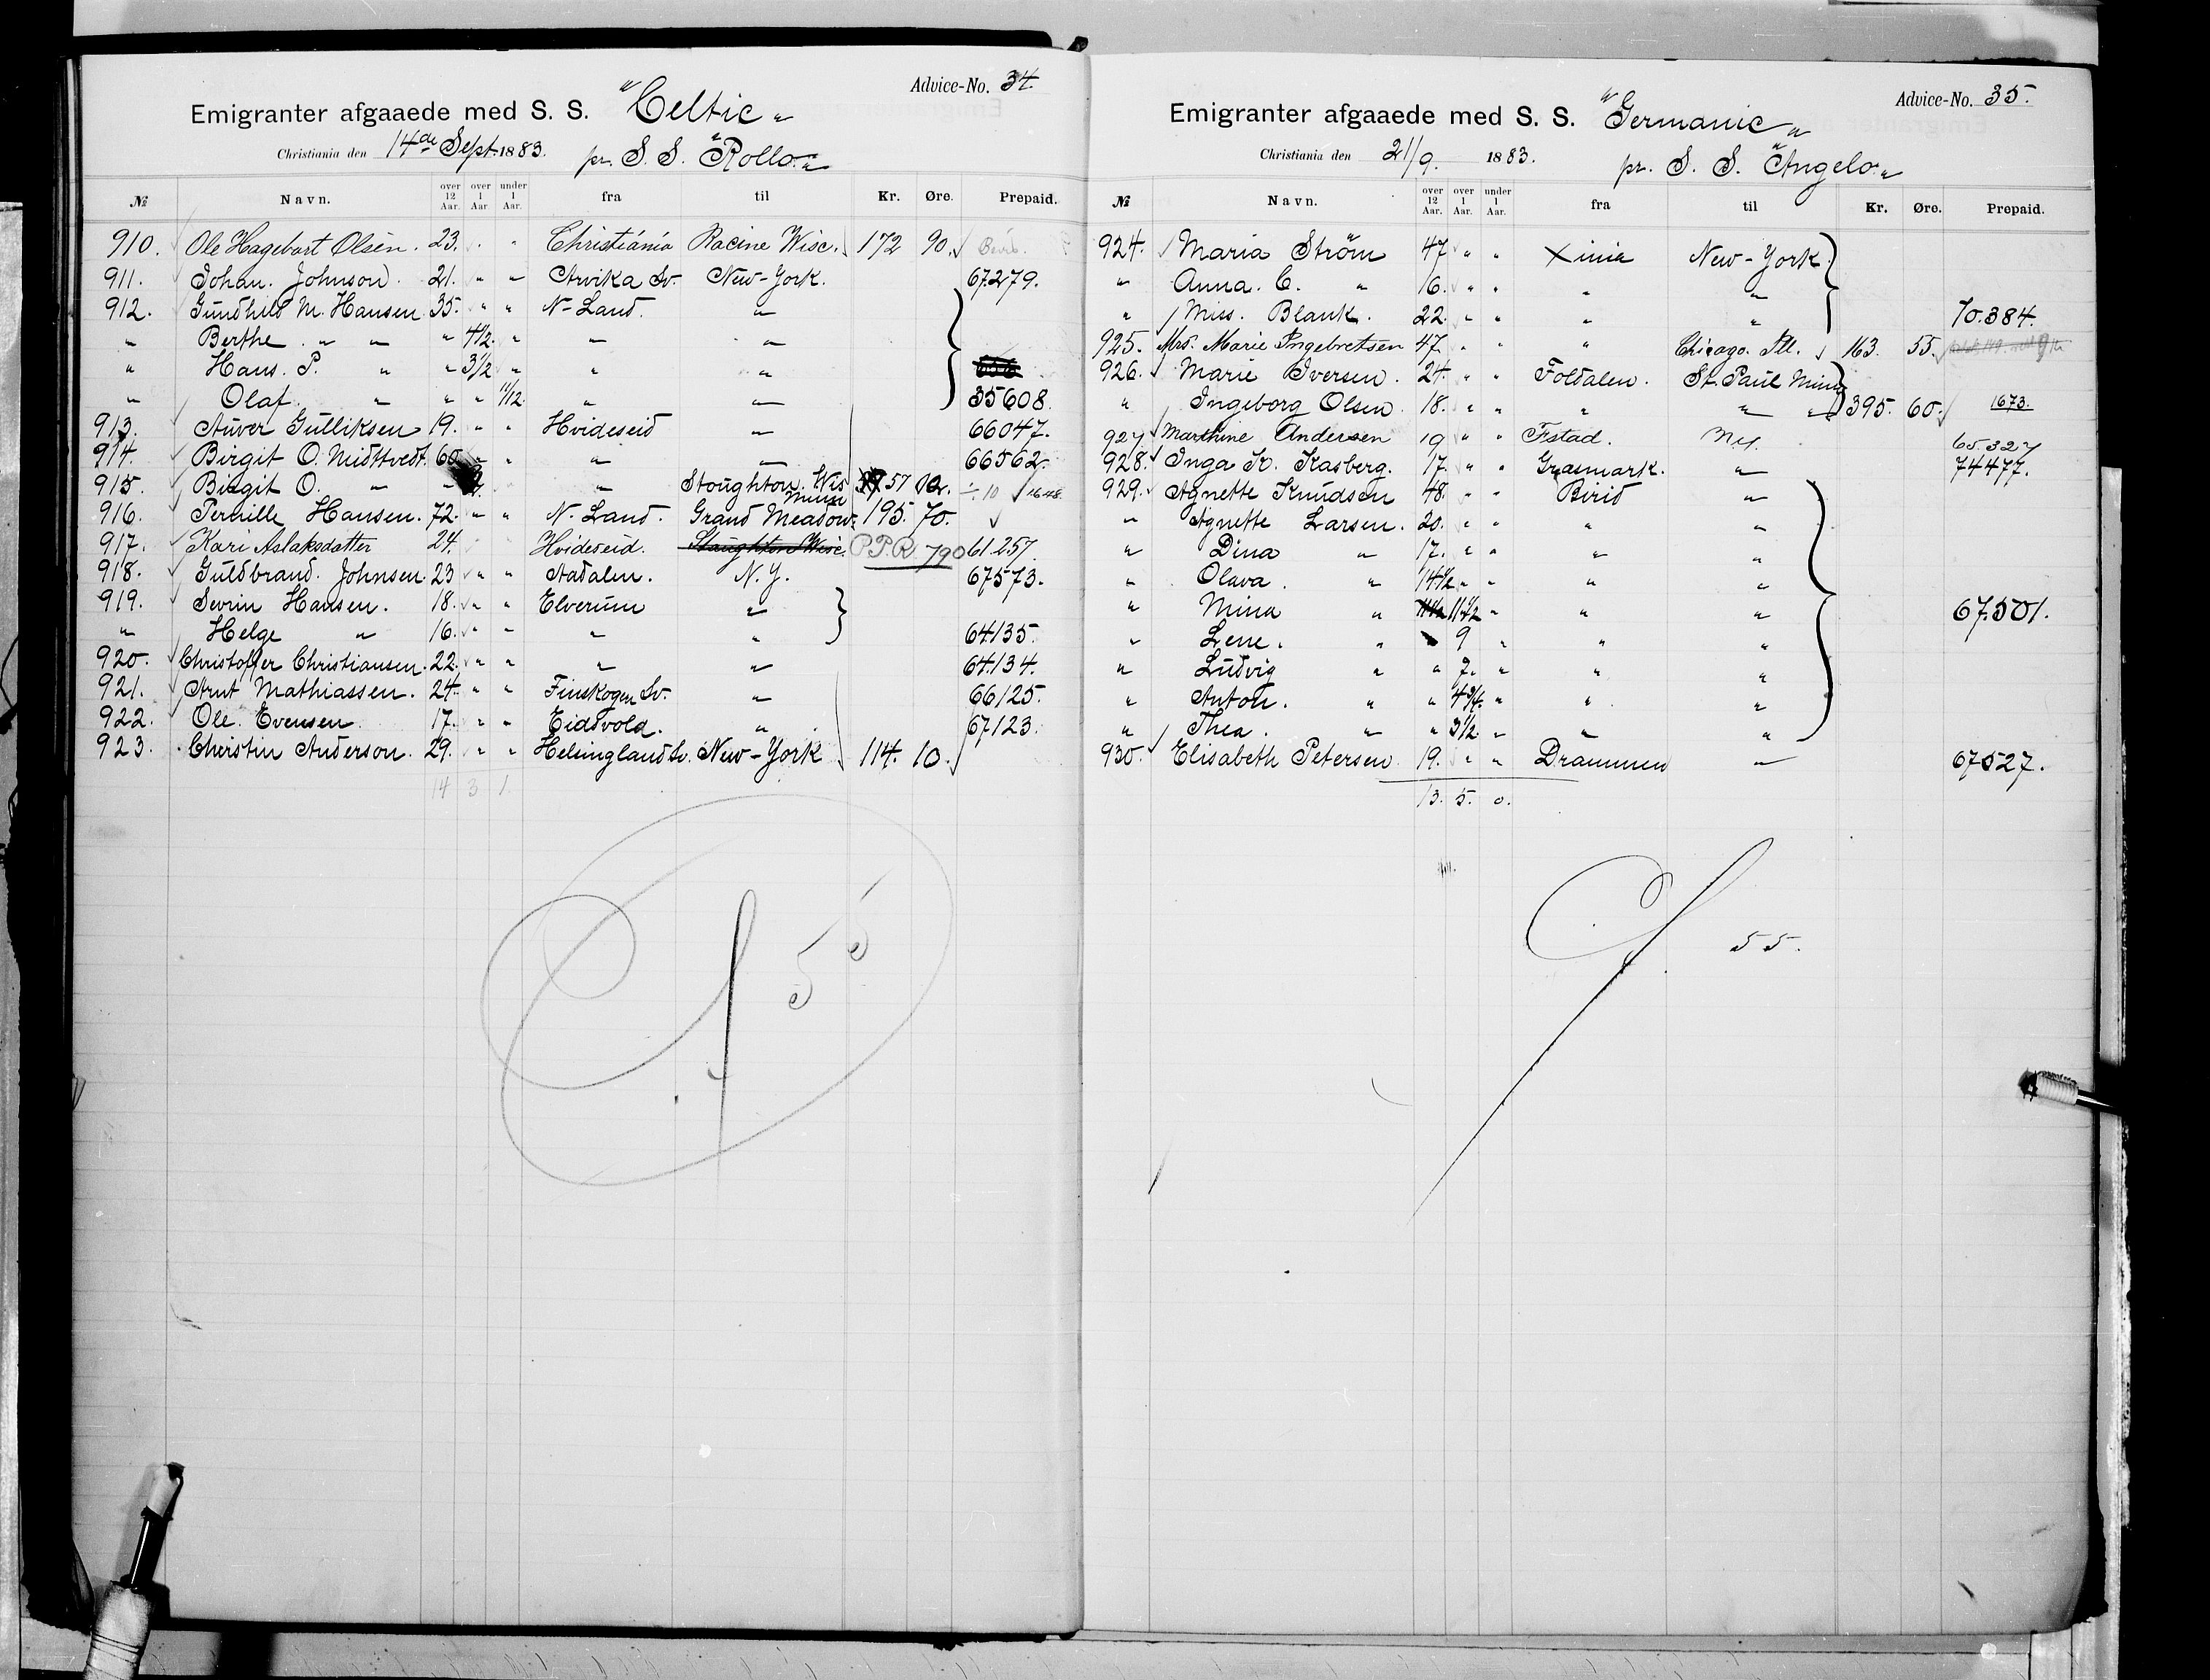 Advice-No. 34.
Emigranter afgaaede med S. S. "Celtic"
Christiania den 14de Sept. 1883. pr. S. S. "Rollo"
№ Navn. over 12 Aar. over 1 Aar under 1 Aar. fra til Kr. Øre. Prepaid.
910. Ole Hagebart Olsen. 23. " " Christiania Racine Wisc. 172 90.
911. Johan. Johnson. 21. " " Arvika Sv. New-York. 67279.
912. Gundhild M. Hansen 35. " " N-Land. "
" Berthe " " " 4 1/2. " " "
" Hans. P. " " 3 1/2 " " "
" Olaf. " " " 11/12 " " 35608.
913. Auver Gulliksen 19. " " Hvideseid " 66047.
914. Birgit O. Midttvedt. 60 " " " " 66562.
915. Birgit O. " " " Stoughton. Wis 57 10 1648
916. Pernille Hansen. 72. " " N. Land. Grand Meadow. Minn 195. 70.
917. Kari Aslaksdatter 24. Hvideseid. Stoughton Wisc. P.P.R. 790 61257
918. Guldbrand. Johnsen. 23 " " Aadalen. N.Y. 67573.
919. Sevrin Hansen. 18. " " Elverum "
" Helge " 16. " " " " 64135.
920. Christoffer Christiansen. 22. " " " " 64134.
921. Arnt Mathiassen. 24. " " Finskogen Sv. " 66125.
922. Ole. Evensen. 17. " " Eidsvold. " 67123.
923. Christin Anderson. 29. " " Helsingland Sv. New-York 114. 10.
14 3 1.
55
Advice-No. 35.
Emigranter afgaaede med S. S. "Germanic"
Christiania den 21/9. 1883. pr. S. S. "Angelo"
№ Navn. over 12 Aar. over 1 Aar. under 1 Aar. fra til Kr. Øre. Prepaid.
924. Maria Ström 47 " " Xinia New-York.
" Anna. C. " 16. " " " "
" Miss. Blank. 22. " " " " 70.384.
925. Mrs. Marie Ingebretsen 47. " " " Chicago. Ill. 163. 55.
926. Marie Iversen. 24. " " Foldalen. St. Paul Minn
" Ingeborg Olsen. 18. " " " " " 395. 60. 1673.
927 Marthine Andersen 19 " " Fstad. N.Y. 65327
928. Inga K. Kasberg. 17. " " Grasmark. " 74477.
929. Agnette Knudsen 48. " " Birid "
" Agnette Larsen. 20. " " " "
" Dina " 17. " " " "
" Olava. " 14 1/2 " " " "
" Mina " 11 1/2 " " " 67.501.
" Lene. " " 9 " " "
" Ludvig " " 7. " " "
" Anton. " " 4 3/4. " " "
" Thea. " " 3 1/2. " " "
930. Elisabeth Petersen 19. " " Drammen " 67527.
13. 5. 0.
55.